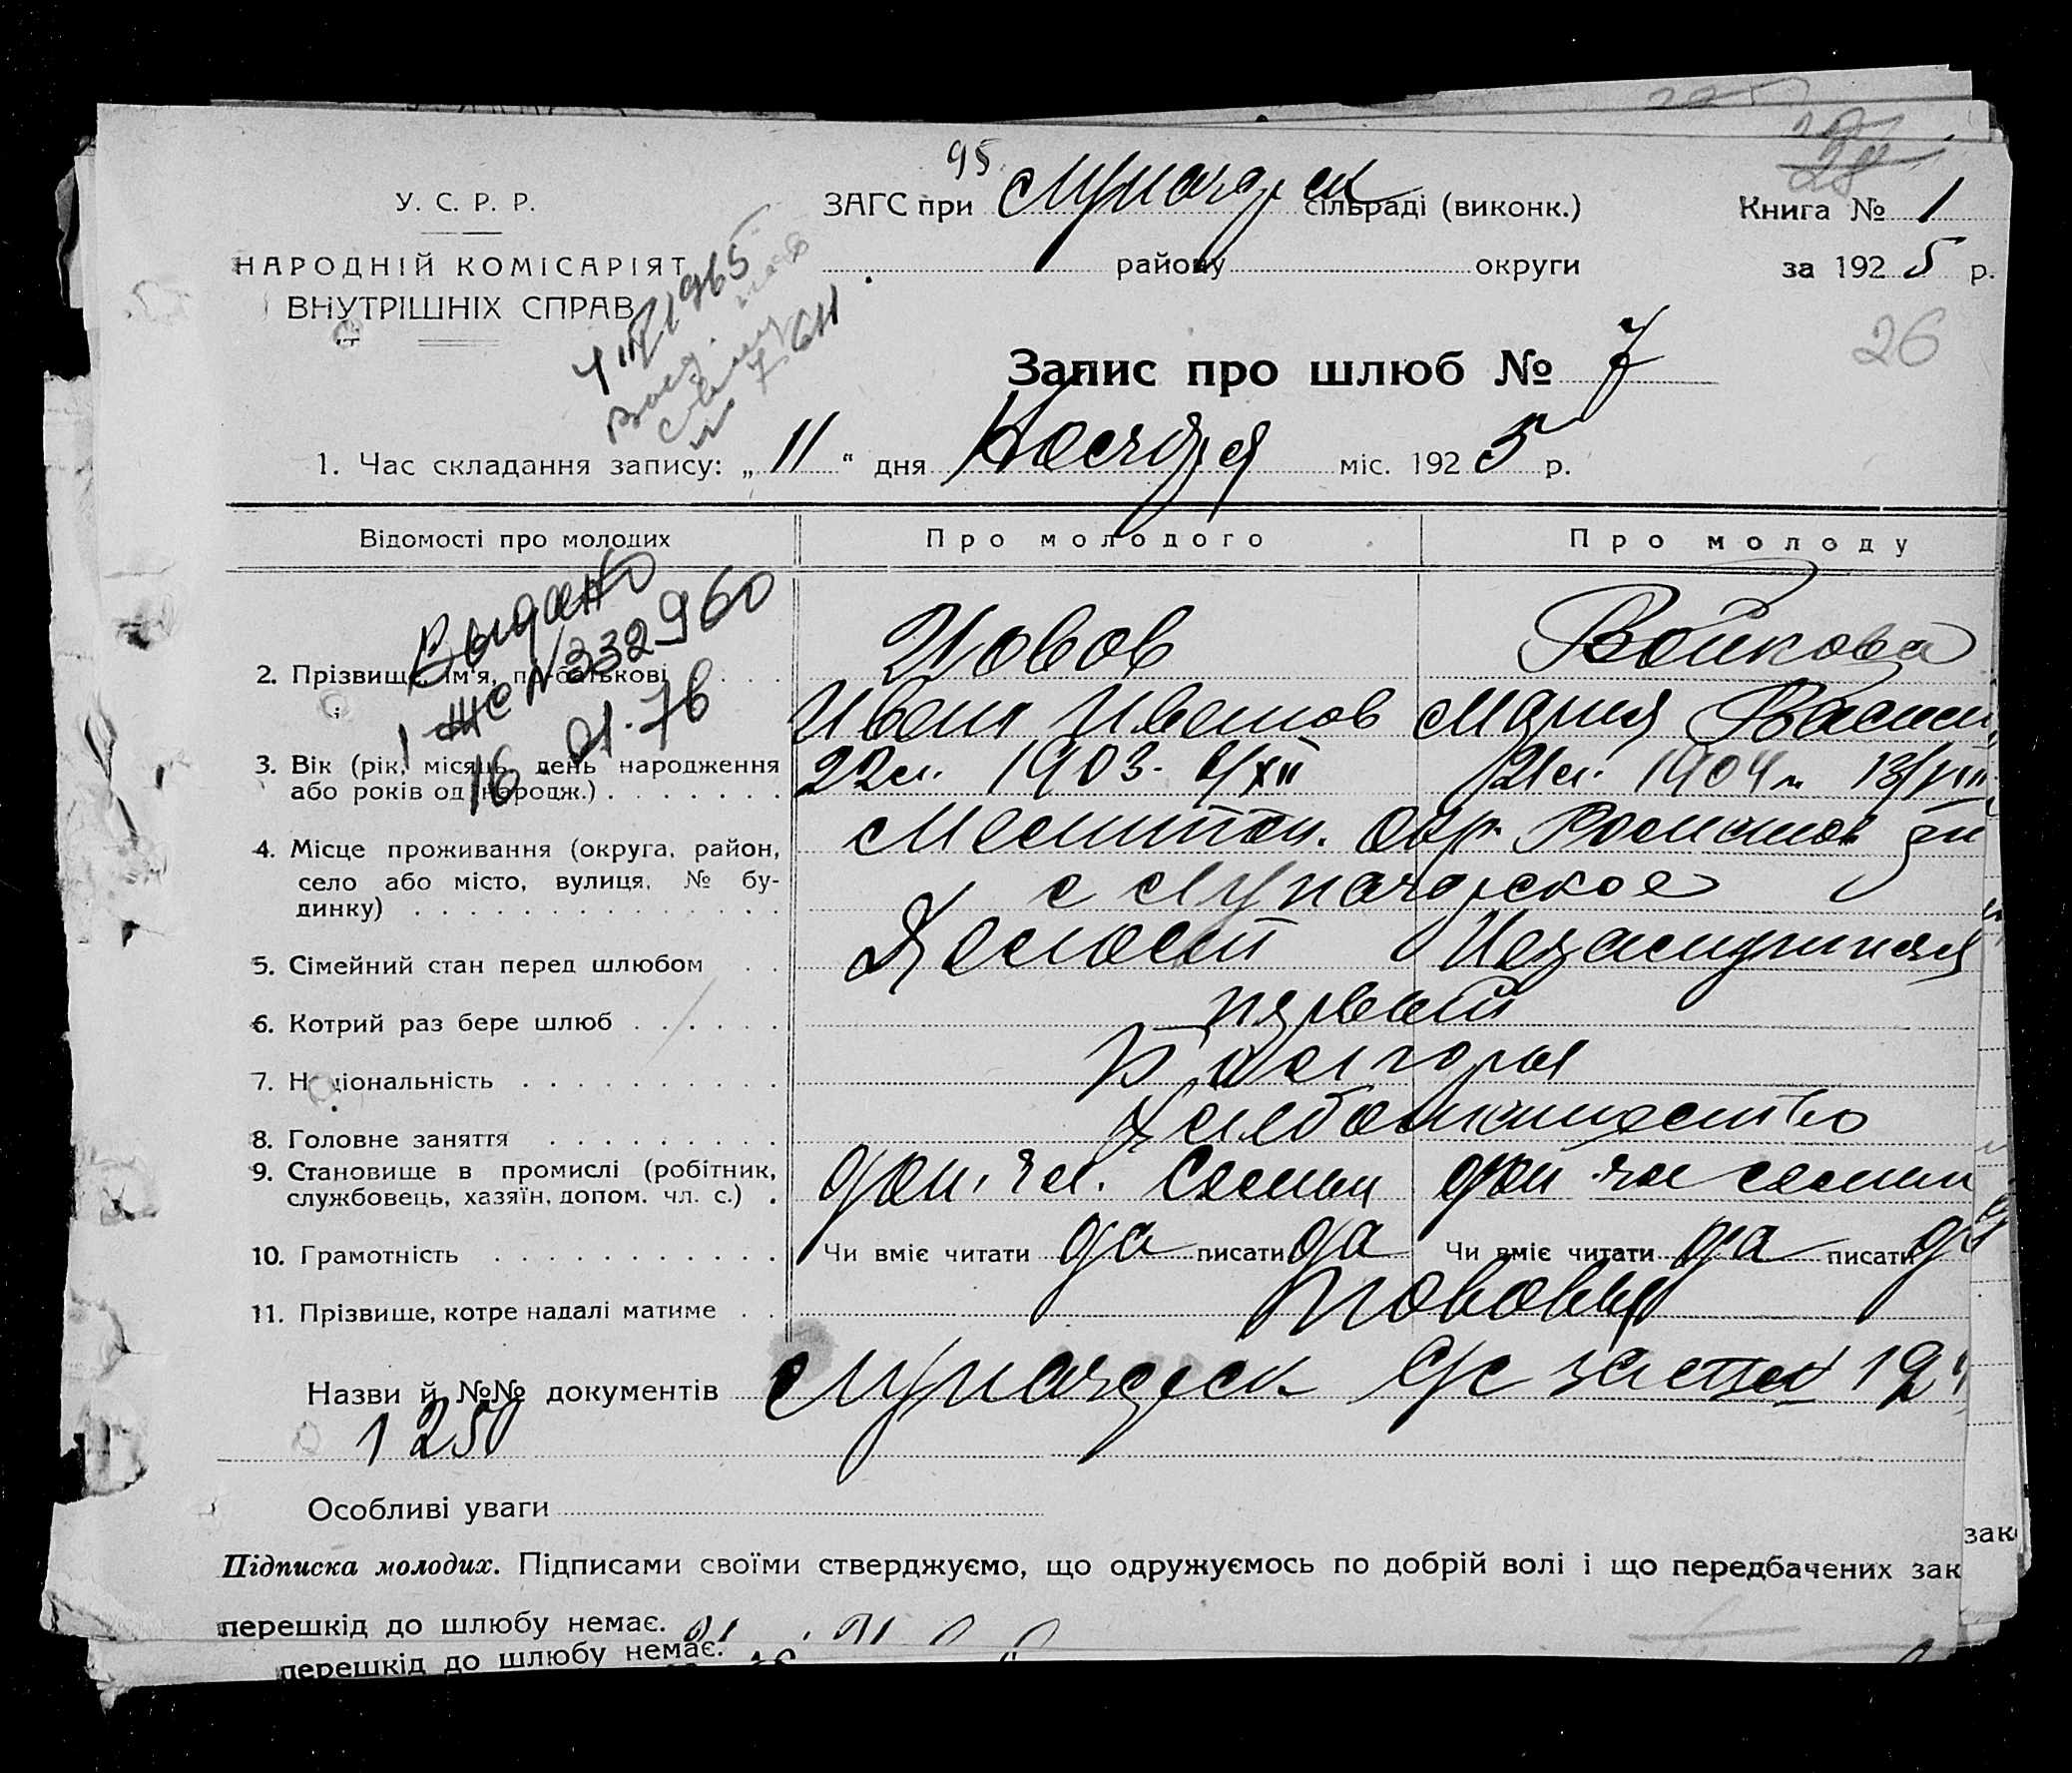 95
У. С. Р. Р.
ЗАГС при Луначарск сільраді (виконк.)
Книга № 1
НАРОДНІЙ КОМІСАРІЯТ
ВНУТРІШНІХ СПРАВ
району округи
за 1925 р.
26
Запис про шлюб № 7
1. Час складання запису: „ 11 “ дня Ноября міс. 1925 р.
Відомості про молодих Про молодого Про молоду
Выдано
332960
16 01.76
2. Прізвище, ім'я, по-батькові
Иовов Войкова
Иван Иванов Мария Васил
3. Вік (рік, місяць, день народження
або років од народж.)
22 л. 1903. 21 л. 1904 13/VIII
4. Місце проживання (округа, район,
село або місто, вулиця, № бу-
динку)
Мелитоп. окр. Романов
с Луначарское
5. Сімейний стан перед шлюбом Холост Незамужняя
6. Котрий раз бере шлюб первый
7. Національність Болгоры
8. Головне заняття Хлебопашество
9. Становище в промислі (робітник,
службовець, хазяїн, допом. чл. с.)
доп. чл. семьи доп чл семьи
10. Грамотність Чи вміє читати да писати да Чи вміє читати да писати да
11. Прізвище, котре надалі матиме Иововы
Назви й №№ документів Луначарск
1250
Особливі уваги
зак
Підписка молодих. Підписами своїми стверджуємо, що одружуємось по добрій волі і що передбачених зак
перешкід до шлюбу немає.
перешкід до шлюбу немає.